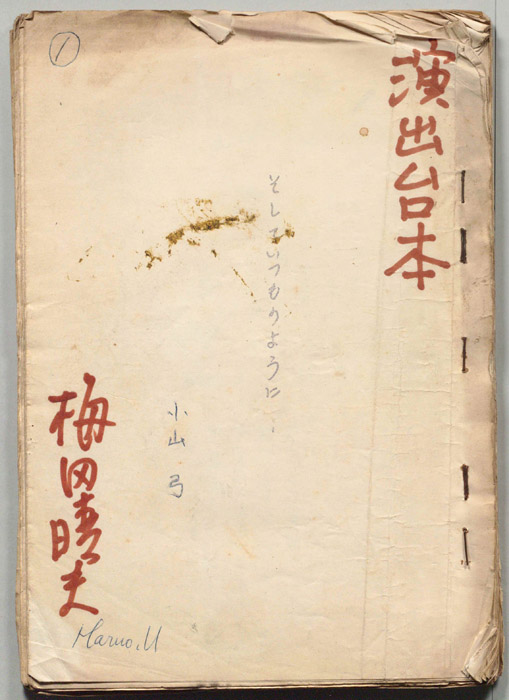 演出台本
そしていつものように…
小山 弓
梅田晴夫
Haruo.U
1